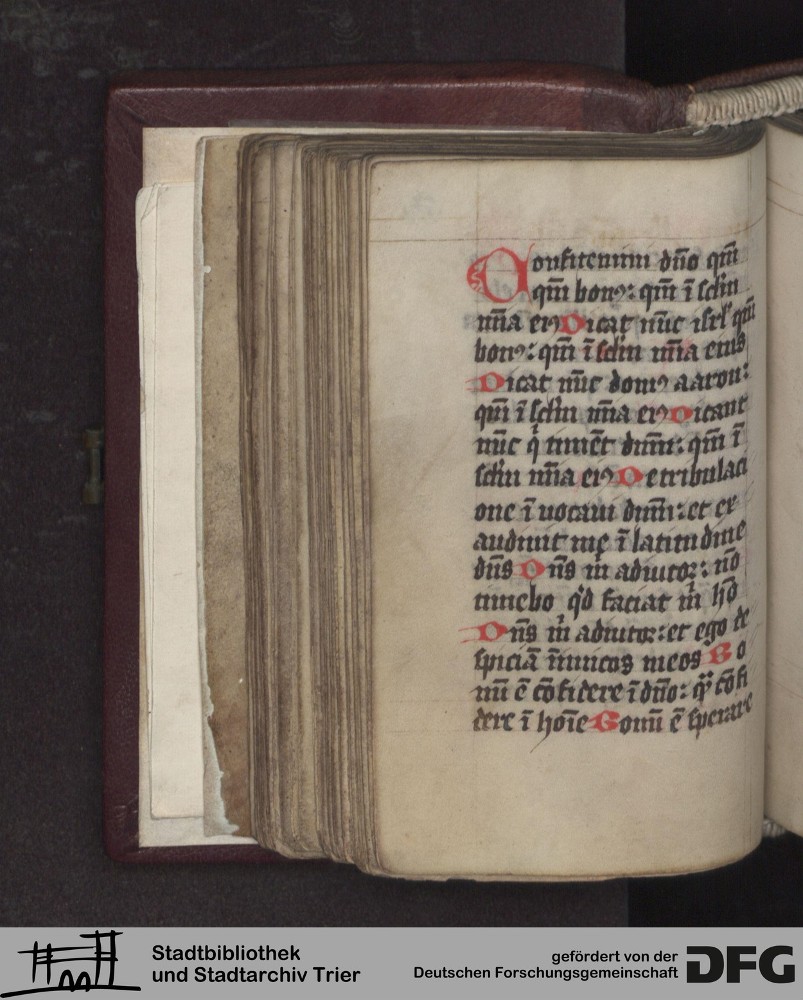 Confitemini dn̄o qm̄
qm̄ bonꝰ: qm̄ ī sc̄lm
mīa eiꝰ Dicat nūc isrl̄ qm̄
bonꝰ: qm̄ ī sc̄lm mīa eius
Dicat nūc domꝰ aaron:
qm̄ ī sc̄lm mīa eiꝰ Dicant
nūc q̄ timēt dnm̄: qm̄ ī
sc̄lm mīa eiꝰ De tribulaci
one īuocaui dnm̄: et ex
audiuit me ī latitudine
dn̄s Dn̄s m̄ adiutor: nō
timebo qͥd faciat m̄ hō
Dn̄s m̄ adiutor: et ego de
spiciā īimicos meos Bo
nū ē cōfidere ī dn̄o: qͣ cōfi
dere ī hoīe Bonū ē sperare
Stadtbibliothek
und Stadtarchiv Trier
gefördert von der
Deutschen Forschungsgemeinschaft
DFG